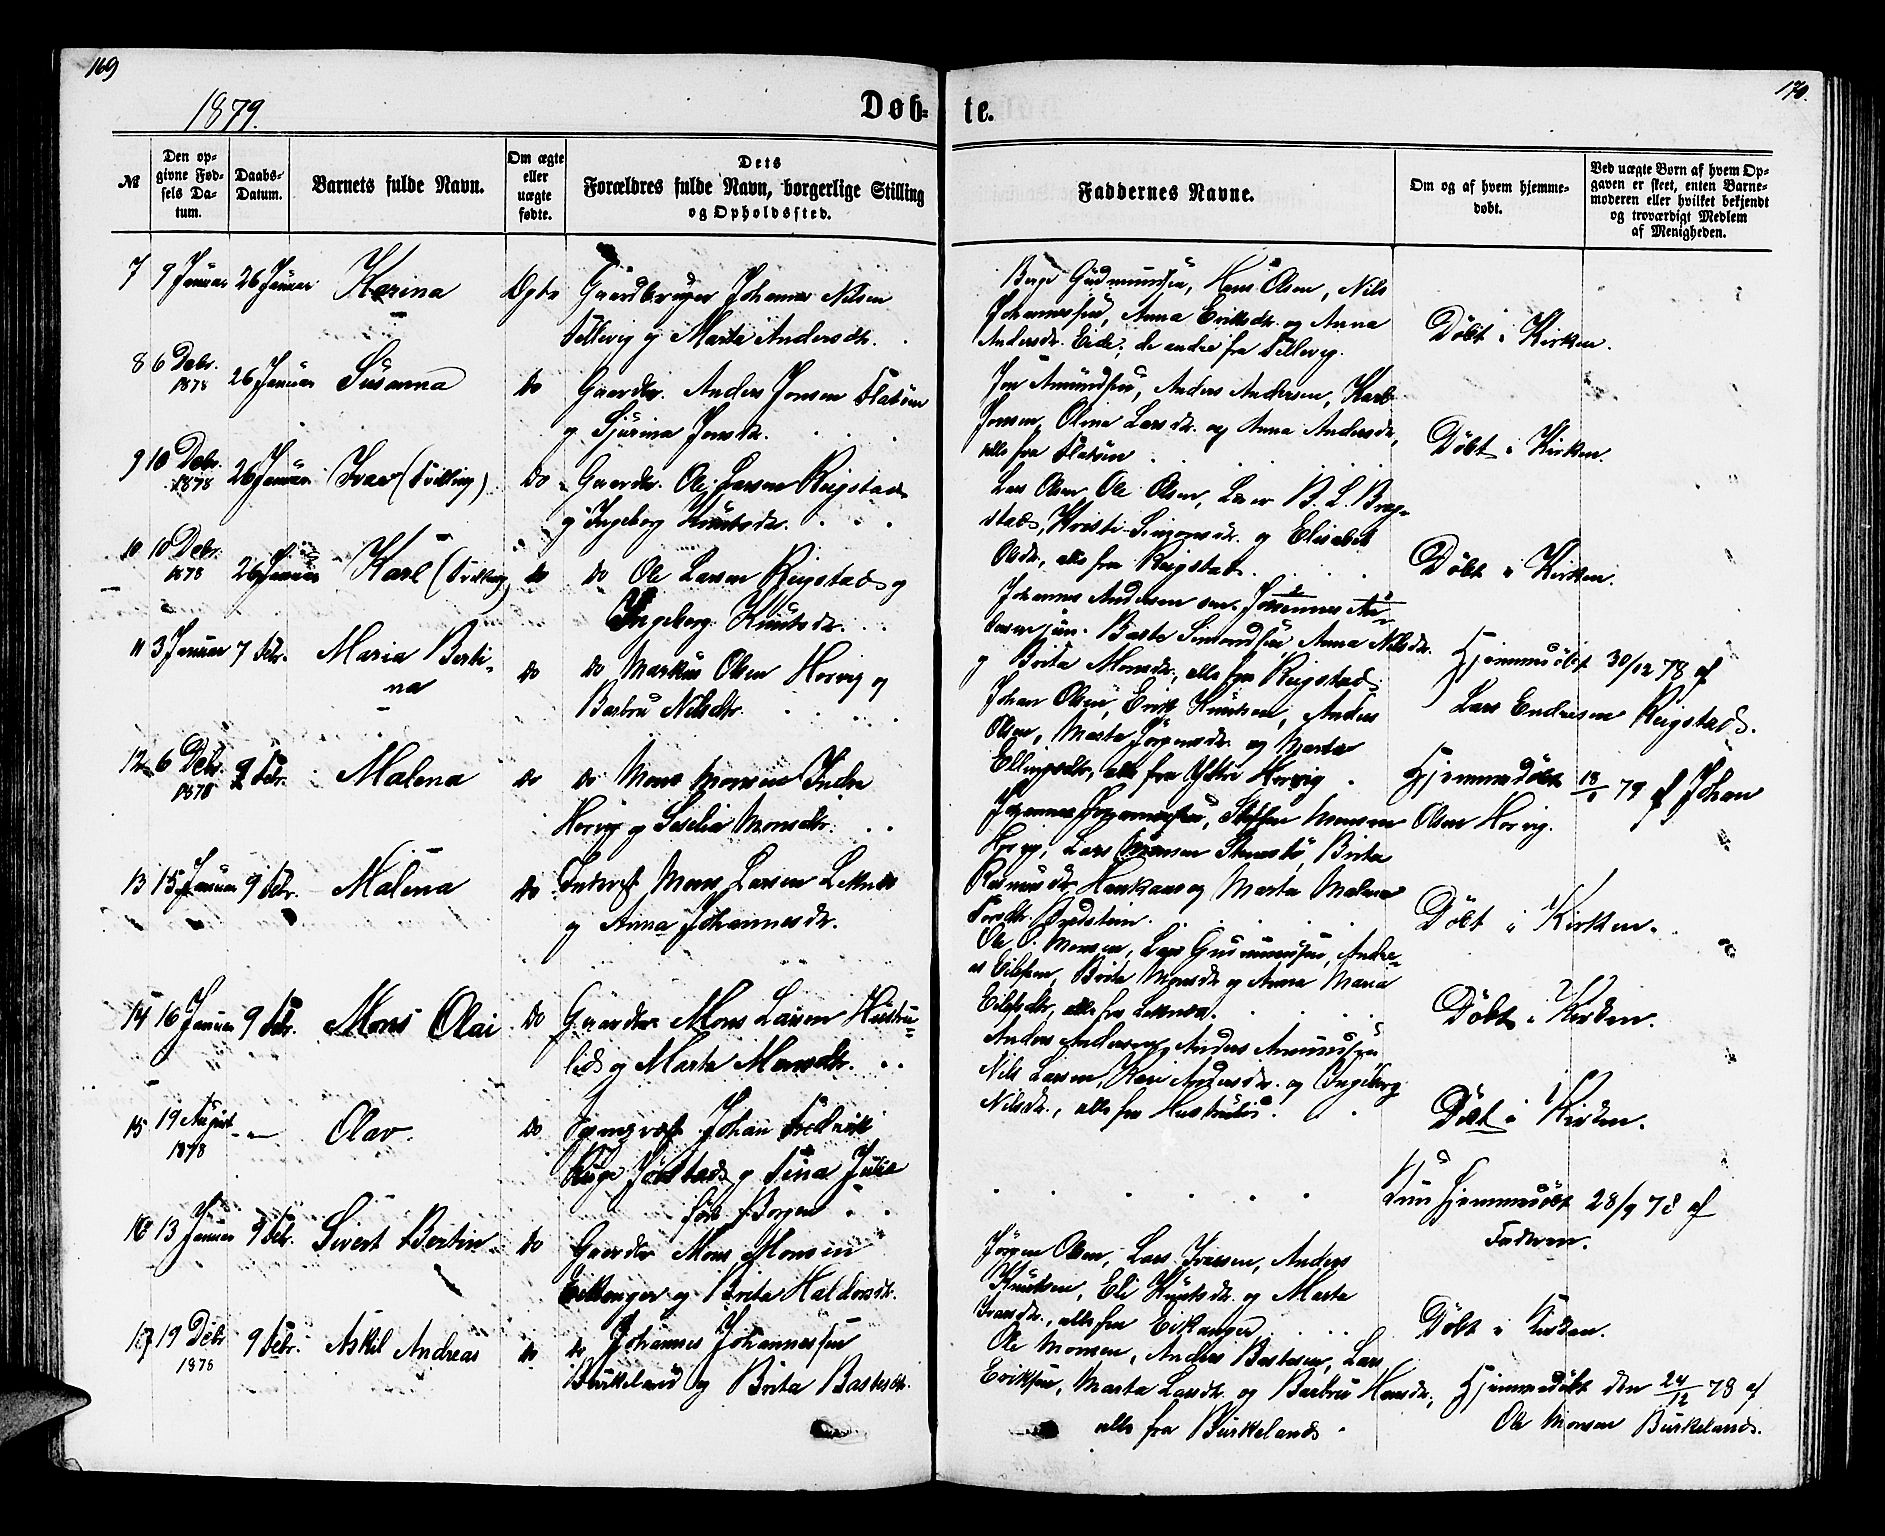 169
170.
1879.
Døb-
te.
№
Den op-
givne Fød-
sels Da-
tum.
Daabs-
Datum.
Barnets fulde Navn.
Om ægte
eller
uægte
fødte.
Dets
Forældres fulde Navn, borgerlige Stilling
og Opholdssted.
Faddernes Navne.
Om og af hvem hjemme-
døbt.
Ved uægte Børn af hvem Op-
gaven er skeet, enten Barne-
moderen eller hvilket bekjendt
og troværdigt Medlem
af Menigheden.
7 9 Januar 26 Januar Karina Ægte Gaardbruger Johannes Nilsen
Tellevig og Marta Andersdtr.
Gudmundsen, Hans Olsen, Nils
Johannessen, Anna Eriksdtr. og Anna
Andersdtr. Eide, de andre fra Tellevig.
Døbt i Kirken.
8 6 Debr. 1878 26 Januar Susanna do Gaardbr. Anders Jonsen Flatøen
og Sjurina Jonsdtr.
Jon Amundsen, Anders Andersen, Karl
Jonsen, Olina Larsdtr. og Anna Andersdtr.,
alle fra Flatøen
Døbt i Kirken.
9 10 Debr. 1878 26 Januar Ivar (Tvilling) do Gaardbr. Ole Larsen Reigstad
og Ingeborg Knutsdtr.
Lars Olsen, Ole Olsen, B. L. Breg-
stad, Kristi Simonsdtr. og Elisabet
Olsdtr., alle fra Reigstad.
Døbt i Kirken.
10 10 Debr. 1878 26 Januar Karl (Tvilling) do do Ole Larsen Reigstad og
Ingeborg Knutsdtr.
Johannes Andersen sen. Johannes An-
dersen jun. Baste Simonsen Anna Nilsdtr.
og Brita Monsdtr., alle fra Reigstad.
Hjemmedøbt 30/12 78 af
Lars Endresen Reigstad.
11 3 Januar 7 Febr. Maria Berti-
na do do Markus Olsen Hosvig og
Barbru Nilsdtr.
Johan Olsen, Erik Knutsen, Anders
Olsen, Marta Jørgensdtr. og Marta
Ellingsdtr., alle fra Ytre Hosvig.
Hjemmedøbt 79 af Johan
Olsen Hosvig.
12 6 Debr. 1878 9 Febr. Malena do do Mons Monsen Indre
Hosvig og Seselia Monsdtr.
Johannes Johannessen, Steffen Monsen
Hosvig, Lars Monsen, Brita
Rasmusdtr. og Marta Malena
Døbt i Kirken.
13 15 Januar 9 Febr. Malena do Inderst Mons Larsen Leknes
og Anna Johannesdtr.
Ole O. Monsen, Lars Gudmundsen, Andre-
as Eilefsen, Brita Monsdtr. og Anna Maria
Eilefsdtr., alle fra Leknes.
Døbt i Kirken.
14 16 Januar 9 Febr. Mons Olai do Gaardbr. Mons Larsen Hustru-
lid og Marta Monsdtr.
Anders Andersen, Anders Amundsen
Nils Larsen, Kari Andersdtr. og Ingeborg
Nilsdtr., alle fra Hustrulid.
Døbt i Kirken.
15 19 August 1878 Olav. do Johan Fredrik
og Tina Julie
født Borgen
Kun hjemmedøbt 28/9 78 af
Faderen.
16 13 Januar 9 Febr. Sivert Bertin do Gaardbr. Mons Monsen
Eikanger og Brita Haldorsdtr.
Jørgen Olsen, Lars Ivarsen, Anders
Knutsen, Eli Knutsdtr. og Marta
Ivarsdtr., alle fra Eikanger
Døbt i Kirken.
17 19 Debr 1878 9 Febr. Askil Andreas do do Johannes Johannessen
Birkeland og Brita Bastesdtr.
Ole Monsen, Anders Bastesen, Lars
Eriksen, Marta Larsdtr. og Barbru Hansdtr.,
alle fra Birkeland.
Hjemmedøbt den 24/12 78 af
Ole Monsen Birkeland.